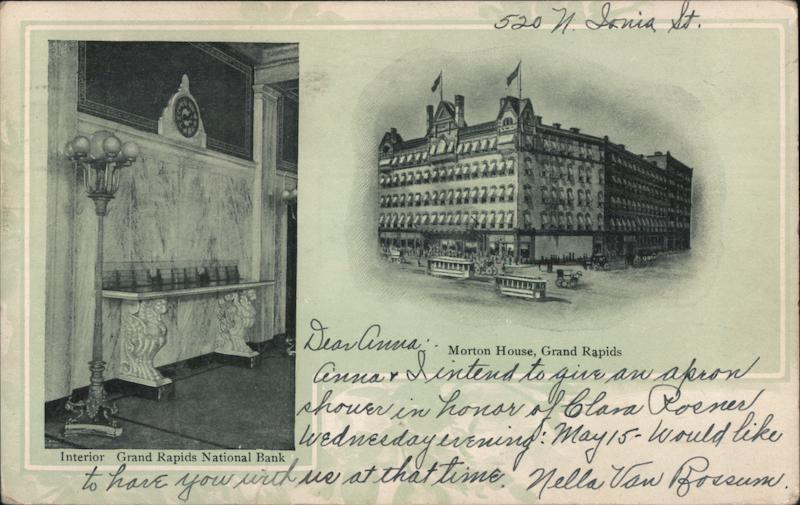 520 N. Ionia St.
Dear Anna:
Morton House, Grand Rapids
Anna & I intend to give an apron
shower in honor of Clara Posner
Wednesday evening: May 15 - Would like
Interior Grand Rapids National Bank
to have you with us at that time. Nella Van Bossum.